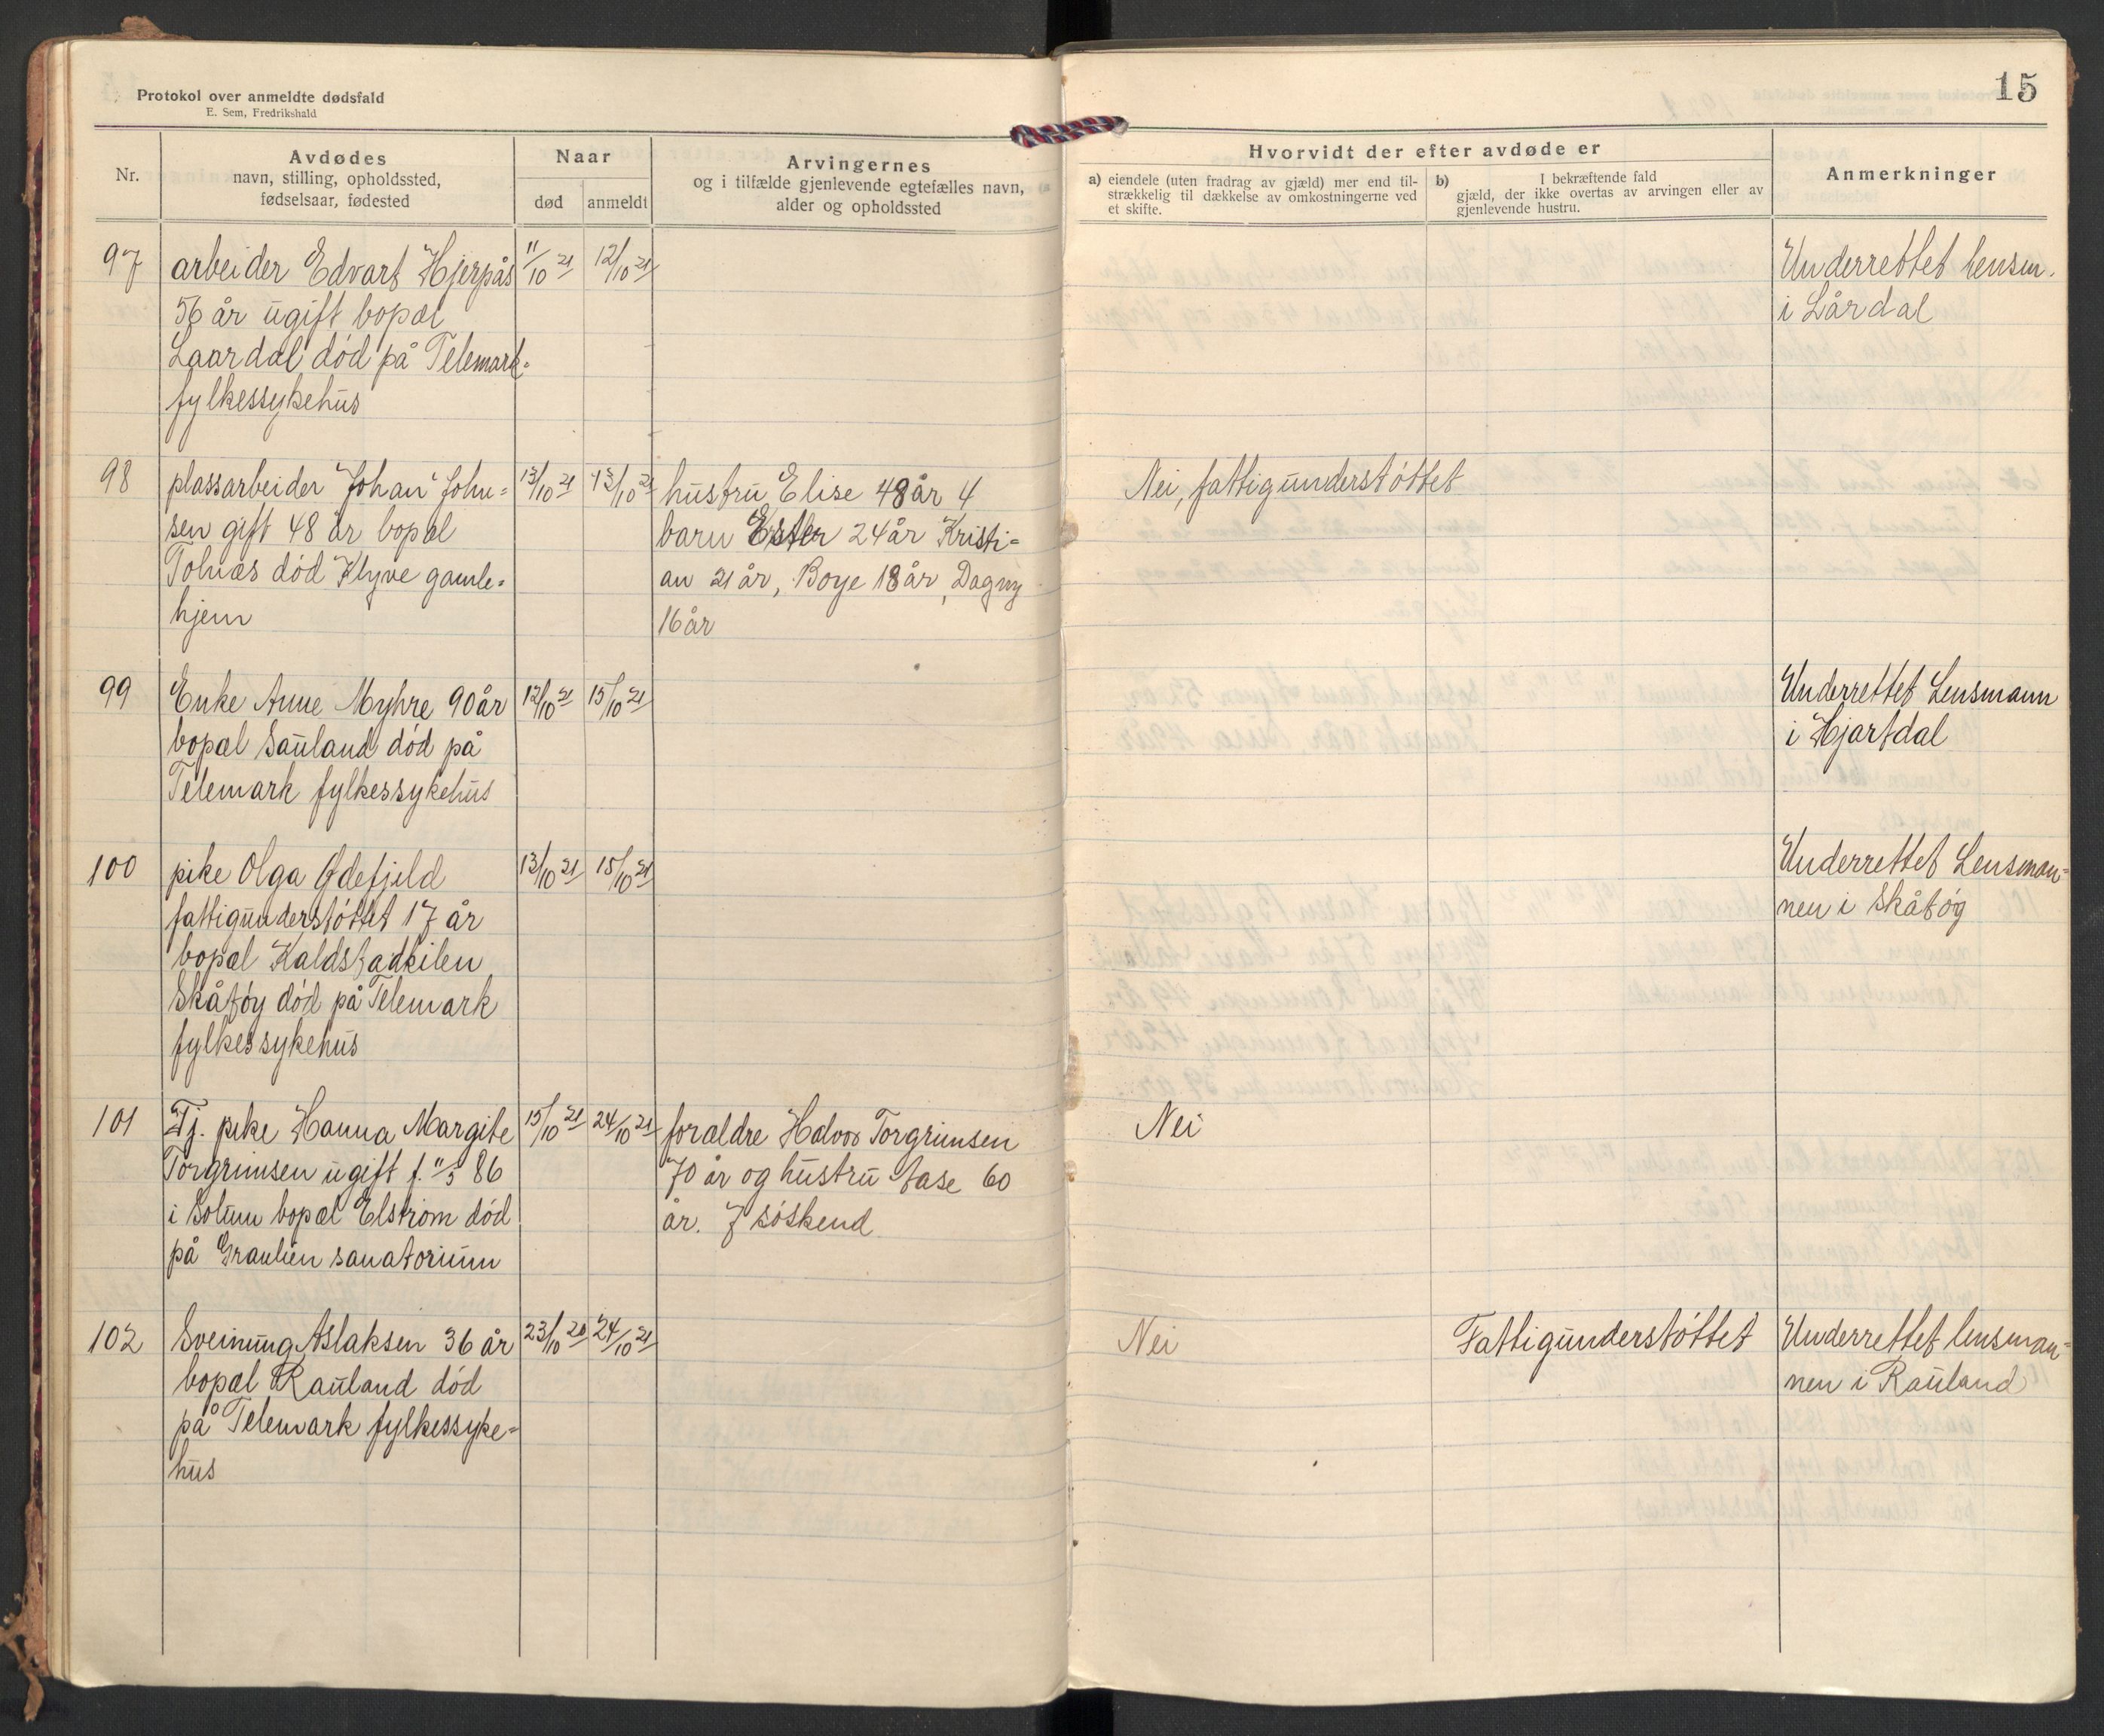 Protokol over anmeldte dødsfald
E. Sem, Fredrikshald
15
Nr.
Avdødes
navn, stilling, opholdssted,
fødselsaar, fødested
Naar
død
anmeldt
Arvingernes
og i tilfælde gjenlevende egtefælles navn,
alder og opholdssted
Hvorvidt der efter avdøde er
a) eiendele (uten fradrag av gjæld) mer end til-
strækkelig til dækkelse av omkostningerne ved
et skifte.
b) I bekræftende fald
gjæld, der ikke overtas av arvingen eller av
gjenlevende hustru.
Anmerkninger
97
arbeider Edvart Hjerpås
56 år ugift bopæl
Laardal død på Telemark-
fylkessykehus
11/10 21
12/10 21
Underrettet lensm.
i Lårdal
98
plassarbeider Johan John-
sen gift 48 år bopæl
Tolnæs død Klyve gamle-
hjem
13/10 21
13/10 21
hustru Elise 48 år 4
barn Ester 24 år Kristi-
an 21 år, Boye 18 år, Dagny
16 år
Nei, fattigunderstøttet
99
Enke Anne Myhre 90 år
bopæl Sauland død på
Telemark fylkessykehus
12/10 21
15/10 21
Underrettet Lensmann
i Hjartdal
100
pike Olga Ødefjeld
fattigunderstøttet 17 år
bopæl Kaldstadkilen
Skåtøy død på Telemark
fylkessykehus
13/10 21
15/10 21
Underrettet Lensman-
nen i Skåtøy
101
Tj. pike Hanna Margite
Torgrimsen ugift f. 11/5 86
i Solum bopæl Elstrøm død
på Granlien sanatorium
15/10 21
24/10 21
forældre Halvor Torgrimsen
70 år og hustru Tase 60
år. 7 søskend
Nei
102
Sveinung Aslaksen 36 år
bopæl Rauland død
på Telemark fylkessyke-
hus
23/10 20
24/10 21
Nei
Fattigunderstøttet
Underrettet lensman-
nen i Rauland